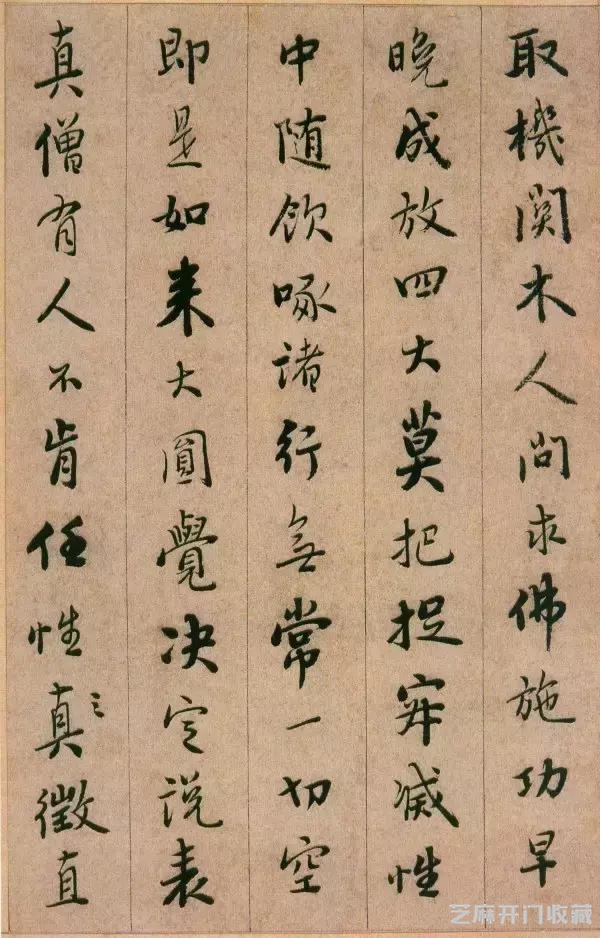 取機関木人問求佛施功早
晚成放四大莫把捉寂滅性
中随飲啄諸行無常一切空
即是如来大圓覺决定說表
真僧有人不肯任性真徵直
芝麻开门收藏